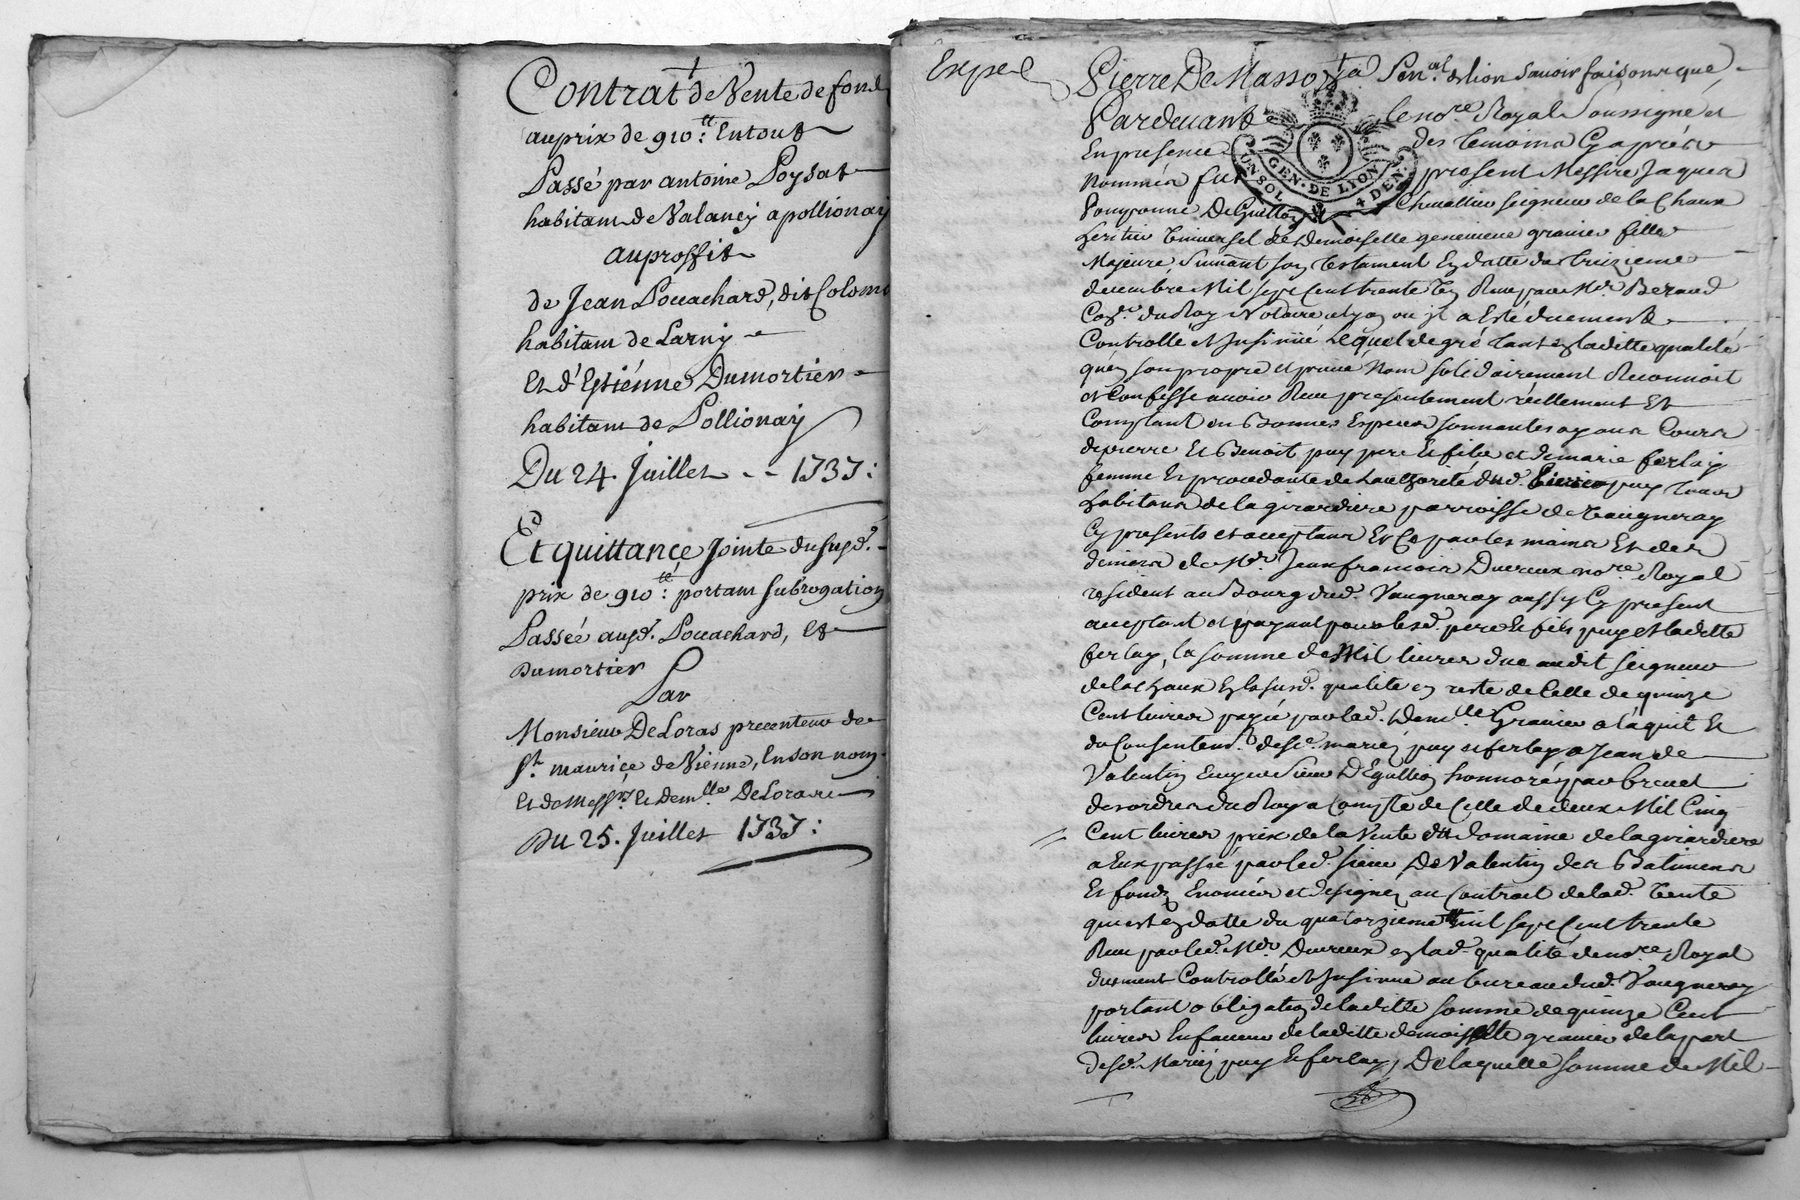 Contrat de Vente de fond
au prix de 910.tt En tout
Passé par antoine Poysat
habitant de Valancy a pollionay
au proffit
de Jean Pouachard, dit Colomb
habitant de Larny
Et d'Estiénne Dumortier
habitant de Pollionay
Du 24. Juillet -- 1737:
Et quittance Jointe du susd.
prix de 910.tt: portant subrogation
Passée ausd. Pouachard, Et
Dumortier
Par
Monsieur De Loras precenteur de
St. maurice de Vienne, En son nom
Et de Messrs. Et demlles De Loras
Du 25. Juillet 1737:
Exped
Pierre De Masso Senal. de lion Savoir faisons que
Pardevant le nore. Royal Soussigné et
En presence des temoins Cy apres
Nommés fut present Messire Jaques
Pomponne De Chevallier seigneur de la Chaux
heritier Universel de Demoiselle genevieve granier fille
Majeure, Suivant son testament En datte du treizieme
decembre Mil sept Cent trente Reçu par Mer. Beraud
Conser. du Roy Notaire a lyon ou il a Esté duement
Controllé et Insinüé Lequel de gré tant En laditte qualité
qu'en son propre et privé Nom solidairement Reconnoit
et Confesse avoir Reçu presentement réellement Et
Comptant En Bonnes Especes sonnantes ayans Cours
de pierre Et Benoit puy pere Et fils et de marie ferlay
femme Et procedante de L'authorité dud. pierre puy tous
habitans de la girardiere parroisse de Vaugneray
Cy presents et acceptans Et Ce par les mains Et des
deniers de Mer. Jean francois Duvreux nore. Royal
resident au Bourg dud. Vaugneray aussy Cy present
acceptant et payant pour lesd. pere Et fils puy et laditte
ferlay, la somme de Mil livres due audit seigneur
de la Chaux En la susd. qualité en reste de Celle de quinze
Cent livres payée par lad. Demlle. Granier a l'aquit Et
du Consentemt. desd. mariés puy et ferlay a Jean de
Valentin Ecuyer Sieur D'Egullion honnoré par brevet
des ordres du Roy a Compte de Celle de deux Mil Cinq
Cent livres prix de la Vente du domaine de la girardiere
a Eux passé par led. sieur De Valentin des Batimens
Et fonds Enoncés et designez au Contrat de lad. Vente
qui est En datte du quatorzieme Mil sept Cent trente
Reçu par led. Mer. Duvreux En lad. qualité de nore. Royal
duement Controllé et Insinué au bureau dud. Vaugneray
portant obligation de laditte somme de quinze Cent
livres En faveur de laditte demoiselle granier de la part
desd. Mariés puy Et ferlay, De laquelle somme de Mil
GEN. DE LYON
UN SOL
4 DEN.